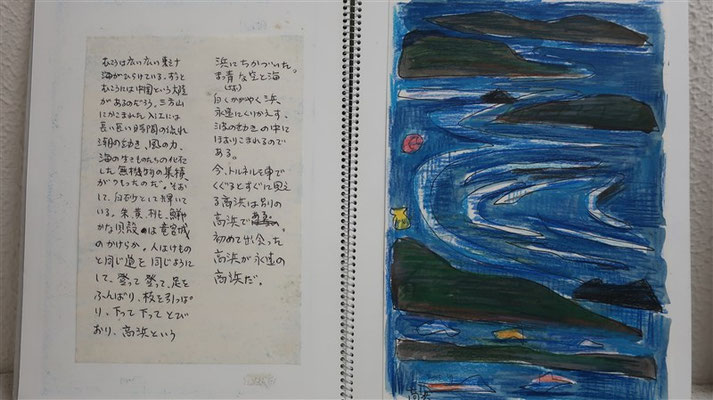 むこうは広い広い東シナ
海がひらけている。ずっと
むこうには中国という大陸
があるのだろう。三方山
にかこまれた入江には
長い長い時間の流れ
潮の動き、風の力、
海の生きものたちの化石
した無機物の集積
が つもったのだ。
して、白砂として輝いて
いる。朱、黄、桃、鮮や
かな貝殻は竜宮城
のかけらか。人はけもの
と同じ道を同じように
して、登って登って、足を
ふんばり、枝を引っぱ
り、下って下ってとび
おり、高浜という
浜にちかづいた。
まっ青な空と海
白くかがやく浜
永遠にくりかえす、
波の動きの中に
ほおりこまれるので
ある。
今、トルネルを車で
くぐるとすぐに見え
る高浜は別の
高浜で
初めて出会った
高浜が永遠の
高浜だ。
高浜